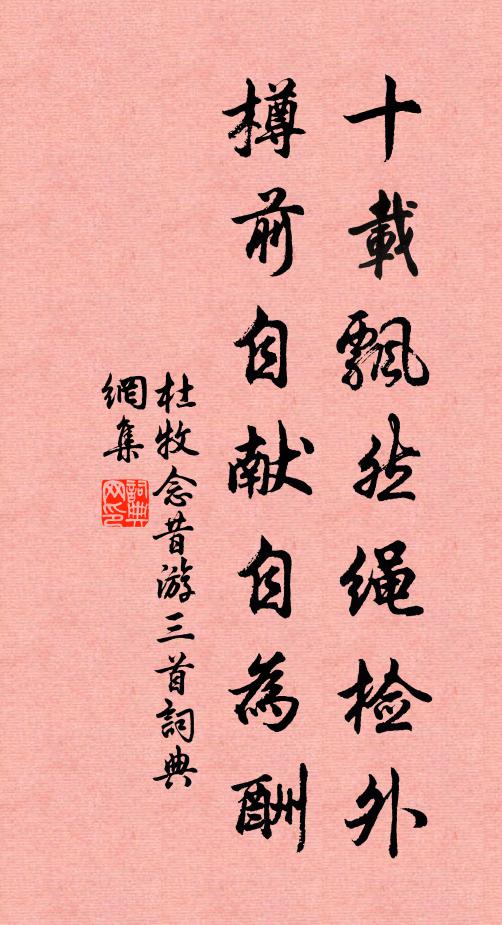 十載飄然绳检外
樽前自献自為酬
杜牧念昔游三首詞典
網集
詞典网印